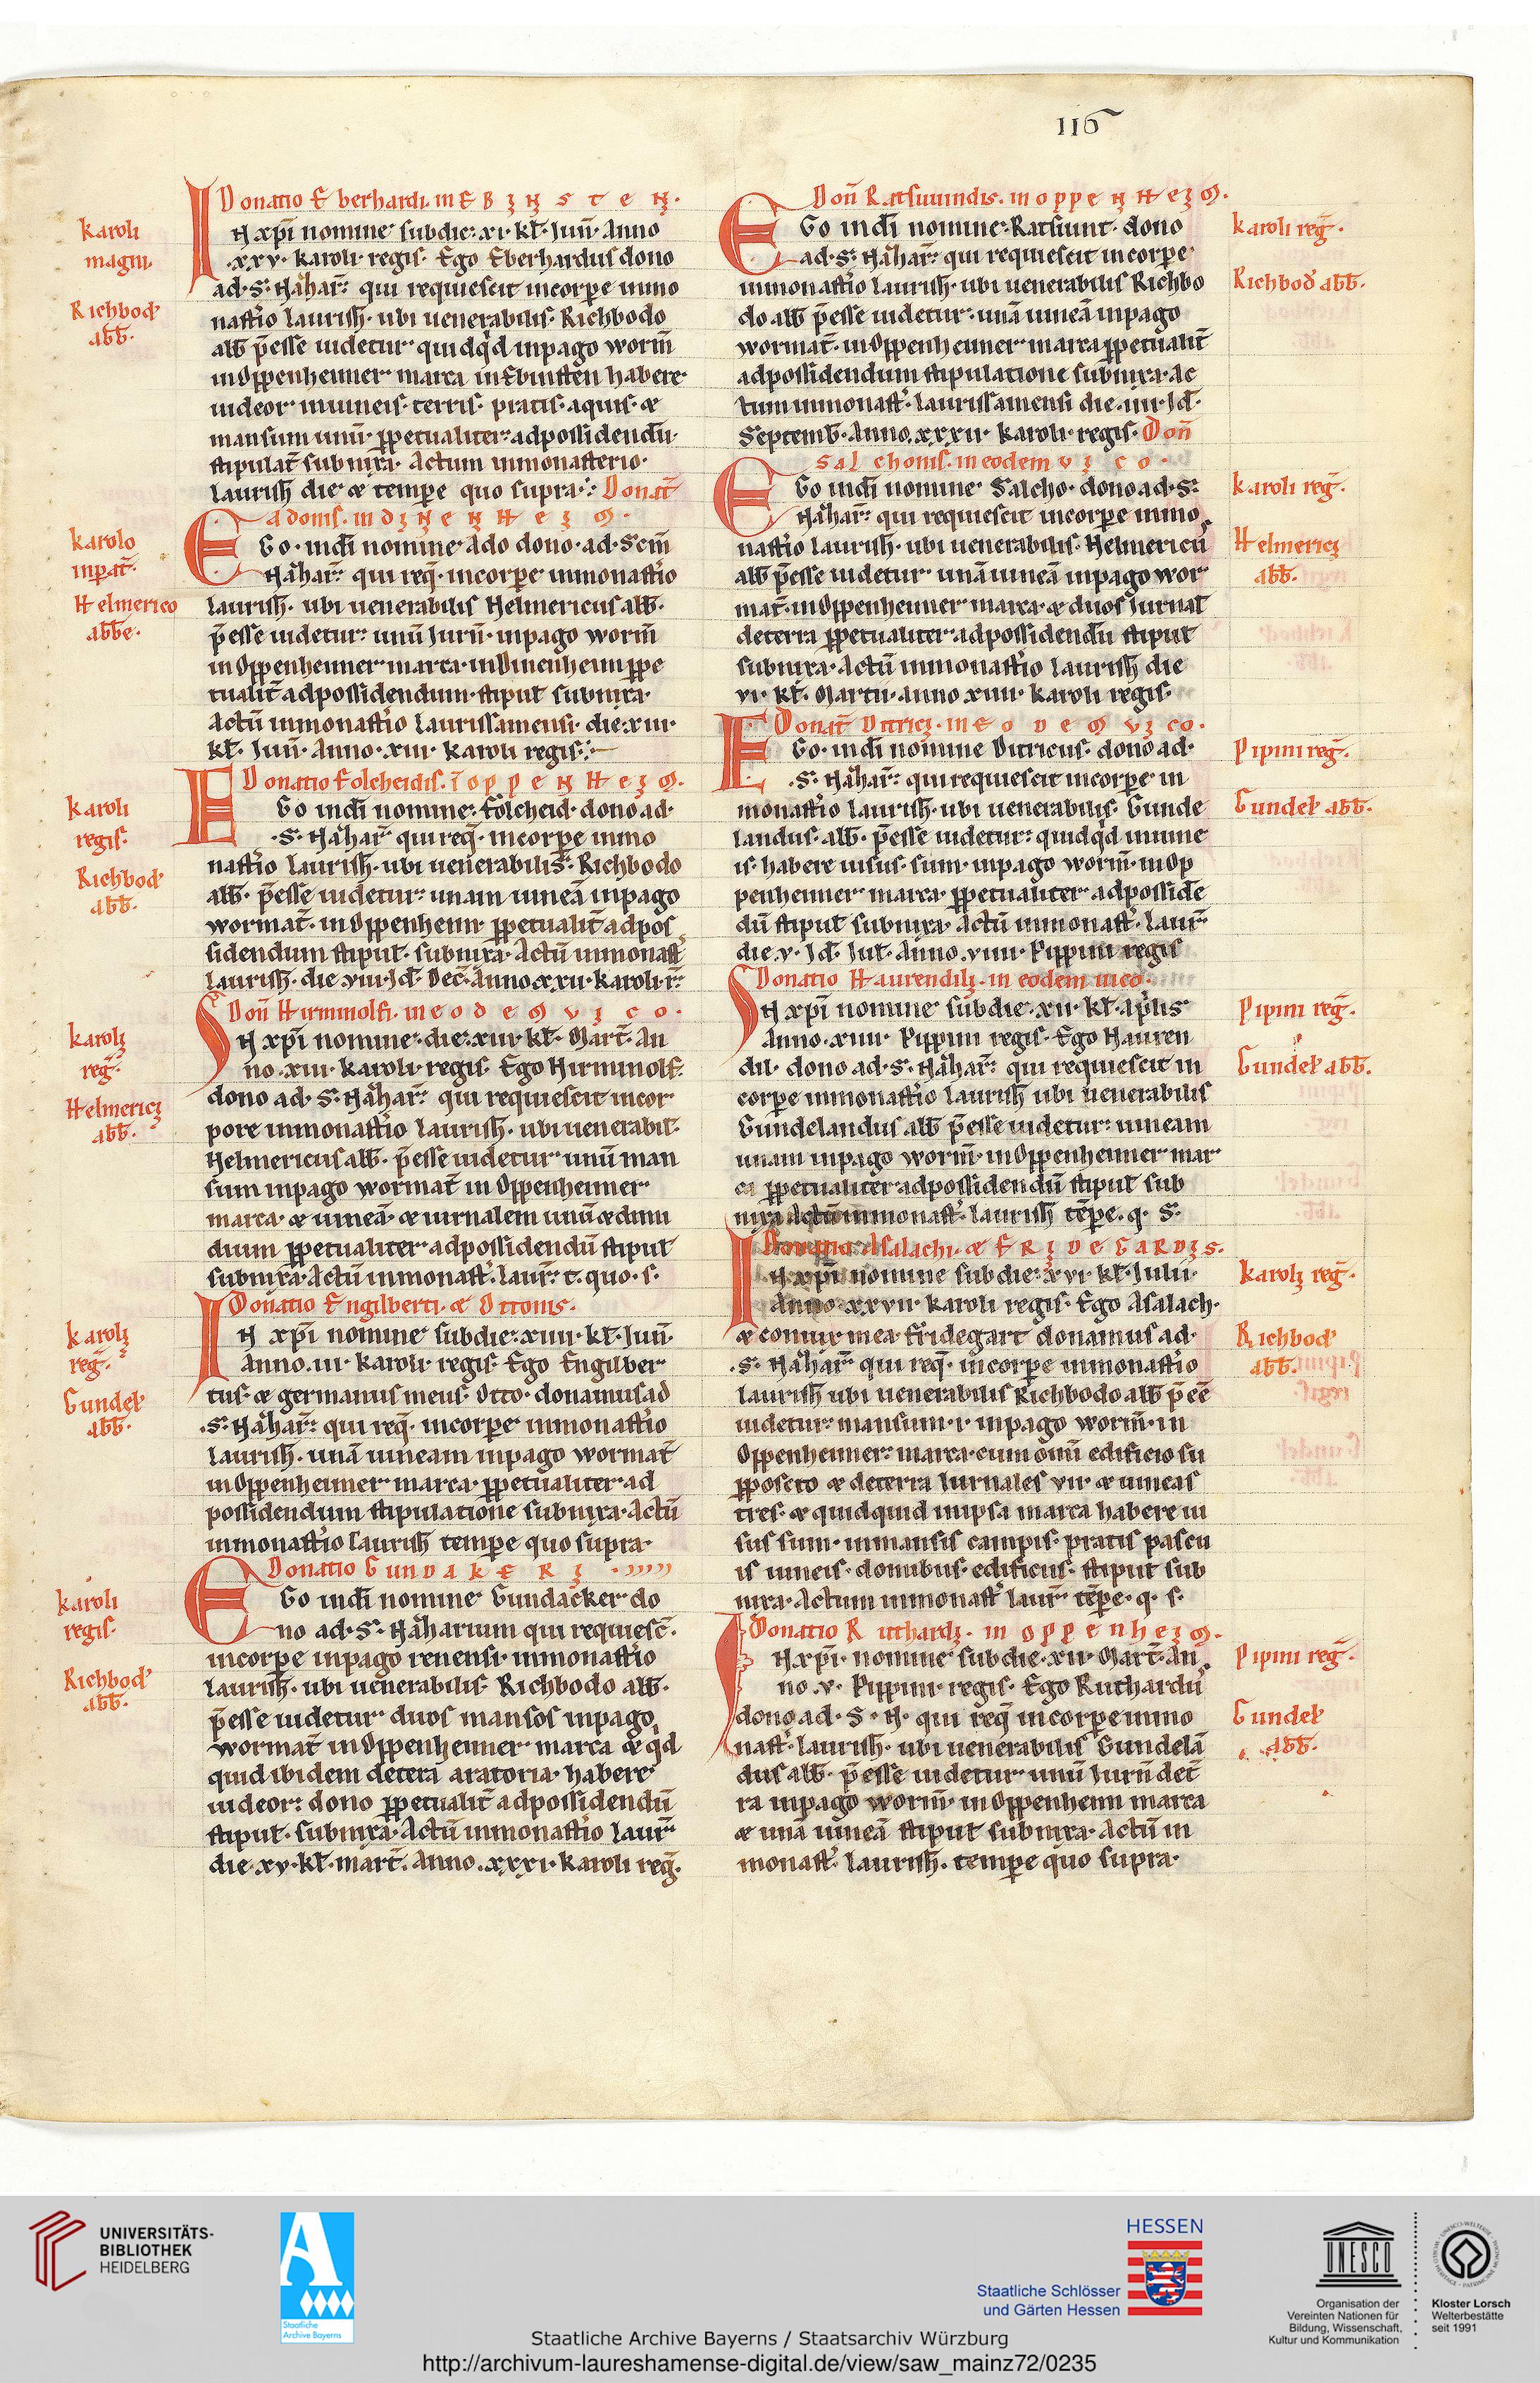 116
Donatio Eberhardi. in EBINSTEN.
karoli
magni.
Richbod'
abb.
IN xp̄i nomine sub die. xi. kł. Jun̄. Anno
.xxv. karoli regis. Ego Eberhardus dono
ad. S. Nazar. qui requiescit in corpe in mo
nast'io laurish. ubi uenerabilis. Richbodo
abb p̄esse uidetur quidqd in pago worm̄
in Oppenheimer marca in Ebinsten habere
uideor in uineis. terris. pratis. aquis. &
mansum unū. ppetualiter. ad possidendū.
stipulat̄ subnixa. Actum in monasterio.
laurish die & tempe quo supra. Donat̄
Adonis. in DINENHEIM.
karolo
inpat̄.
Helmerico
abbe.
EGo. in dī nomine Ado dono. ad. Scm̄
Nazar. qui req̄. in corpe in monast'io
laurish. ubi uenerabilis Helmericus abb.
p̄esse uidetur. unū Jurn̄. in pago worm̄
in Oppenheimer marca. in Dinenheim ppe
tualit̄ ad possidendum. stipuł subnixa.
Actū in monast'io laurissamensi. die. xiii.
kł. Jun̄. Anno. xiii. karoli regis.
Donatio Folcheidis. ī OPPENHEIM.
karoli
regis.
Richbod'
abb.
EGo in dī nomine. Folcheid. dono ad.
.S. Nazar qui req̄. in corpe in mo
nast'io laurish. ubi uenerabilis. Richbodo
abb. p̄esse uidetur. unam uineā in pago
wormat̄. in Oppenheim ppetualit̄ ad pos
sidendum stipuł. subnixa. Actū in monast
laurish. die. viii. Jd. Dec. Anno xxii. karoli. r.
Don̄ Hirminolfi. in eodem vico.
karoli
reḡ.
Helmerici
abb.
IN xp̄i nomine. die. xiii. kł. Mart̄. An
no. xiii. karoli regis. Ego Hirminolf.
dono ad. S. Nazar. qui requiescit in cor
pore in monast'io laurish. ubi uenerabił.
Helmericus abb. p̄esse uidetur unū man
sum in pago wormat̄ in Oppenheimer
marca. & uineā. & iurnalem unū & dimi
dium ppetualiter ad possidendū stipuł
subnixa. Actū in monast'. laur. t. quo. s.
Donatio Engilberti. & Ottonis.
karoli
reḡ.
Gundel'
abb.
IN xp̄i nomine sub die. xiiii. kł. Jun̄.
Anno. iii. karoli regis. Ego Engilber
tus. & germanus meus Otto. donamus ad
.S. Nazar. qui req̄. in corpe in monast'io
laurish. unā uineam in pago wormat̄
in Oppenheimer marca. ppetualiter. ad
possidendum stipulatione subnixa. Actū
in monast'io laurish tempe quo supra.
Donatio GUNDAKERI.
karoli
regis.
Richbod'
abb.
EGo in dī nomine Gundacker do
no ad. S. Nazarium qui requiesc̄.
in corpe in pago renensi. in monast'io
laurish. ubi uenerabilis. Richbodo abb.
p̄esse uidetur duos mansos in pago
wormat̄ in Oppenheimer marca & qd
quid ibidem de terra aratoria. habere
uideor. dono ppetualit̄ ad possidendū
stipuł. subnixa. Actū in monast'io laur
die. xv. kł. mart̄. Anno. xxxi. karoli reḡ.
Don̄ Ratsuuindis. in OPPENHEIM.
karoli reḡ.
Richbod' abb.
EGo in dī nomine. Ratsuint. dono
ad. S. Nazar. qui requiescit in corpe
in monast'io laurish. ubi uenerabilis Richbo
do abb p̄esse uidetur. unā uineā in pago
wormat̄. in Oppenheimer marca ppetualit̄
ad possidendum stipulatione subnixa. Ac
tum in monast'. laurissamensi die. iiii. Jd.
Septemb. Anno. xxxii. karoli regis. Don̄
Salchonis. in eodem vico.
karoli reḡ.
Helmerici
abb.
EGo in dī nomine Salcho. dono ad. S.
Nazar. qui requiescit in corpe in mo
nast'io laurish. ubi uenerabilis. Helmericū
abb p̄esse uidetur unā uineā in pago wor
mat̄. in Oppenheimer marca. & duos Jurnał
de terra ppetualiter. ad possidendū stipuł
subnixa. Actū in monast'io laurish die
vi. kł. Martii. anno xiiii. karoli regis.
Donat̄ Ditrici. in EODEM VICO.
Pipini reḡ.
Gundel' abb.
EGo. in dī nomine Ditricus. dono ad.
.S. Nazar. qui requiescit in corpe in
monast'io laurish. ubi uenerabilis. Gunde
landus. abb. p̄esse uidetur. quidqd in uine
is. habere uisus. sum. in pago worm̄. in Op
penheimer marca. ppetualiter. ad posside
dū stipuł subnixa. Actū in monast'. laur
die. v. Jd. Jul. Anno. viiii. Pippini regis
Donatio Haurendili. in eodem uico.
Pipini reḡ.
Gundel' abb.
IN xp̄i nomine sub die. xii. kł. aplis
Anno. xiiii. Pippini regis. Ego Hauren
dil. dono ad. S. Nazar. qui requiescit in
corpe in monast'io laurish ubi uenerabilis
Gundelandus abb p̄esse uidetur. uineam
unam in pago worm̄. in Oppenheimer mar
ca ppetualiter ad possidendū stipuł sub
nixa Actū in monast'. laurish tēpe. q. S.
Donatio Asalachi. & FRIDEGARDIS.
karoli reḡ.
Richbod'
abb.
IN xp̄i nomine sub die. xvi. kł. Julii.
Anno. xxvii. karoli regis. Ego Asalach.
& coniux mea Fridegart donamus ad.
.S. Nazar qui req̄. in corpe in monast'io
laurish ubi uenerabilis Richbodo abb p̄ eē
uidetur. mansum. i. in pago worm̄. in
Oppenheimer. marca. cum omī edificio su
pposito & de terra Iurnales vii. & uineas
tres. & quidquid in ipsa marca habere ui
sus sum. in mansis campis. pratis pascu
is uineis. domibus. edificiis. stipuł sub
nixa. Actum in monast' laur tēpe. q. s.
Donatio Ruthardi. in OPPENHEIM.
Pipini reḡ.
Gundel'
abb.
IN xp̄i. nomine sub die. xii. Mart̄. An
no. v. Pippini. regis. Ego Ruthardū
dono ad. S. N. qui req̄ in corpe in mo
nast'. laurish. ubi uenerabilis Gundelā
dus abb. p̄esse uidetur unū Iurn̄ de t̄
ra in pago worm̄. in Oppenheim marca
& unā uineā stipuł subnixa. Actū in
monast'. laurish. tempe quo supra.
UNIVERSITÄTS-
BIBLIOTHEK
HEIDELBERG
Staatliche
Archive Bayerns
HESSEN
Staatliche Schlösser
und Gärten Hessen
UNESCO
Organisation der
Vereinten Nationen für
Bildung, Wissenschaft,
Kultur und Kommunikation
Kloster Lorsch
Welterbestätte
seit 1991
Staatliche Archive Bayerns / Staatsarchiv Würzburg
http://archivum-laureshamense-digital.de/view/saw_mainz72/0235